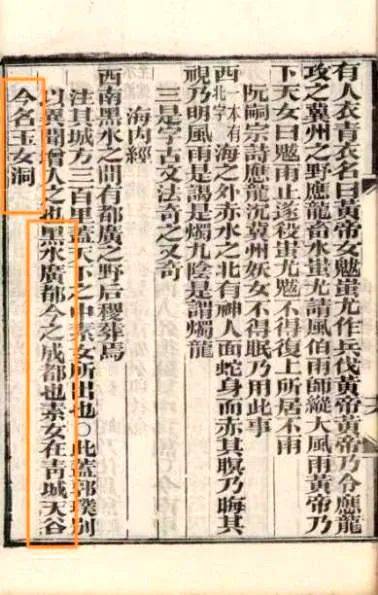 有人衣青衣名曰黃帝女魃蚩尤作兵伐黃帝黃帝乃令應龍
攻之冀州之野應龍畜水蚩尤請風伯雨師縱大風雨黃帝乃
下天女曰魃雨止遂殺蚩尤魃不得復上所居不雨
阮嗣宗詩應龍沉冀州妖女不得眠乃用此事
西一本有北字海之外赤水之北有神人面蛇身而赤其瞑乃晦其
視乃明風雨是謁是燭九陰是謂燭龍
三是字古文法奇之又奇
海內經
西南黑水之間有都廣之野后稷葬焉
注其城方三百里蓋天下之中素女所出也○此蓋郭璞別
以異聞增入之也黑水廣都今之成都也素女在青城天谷
今名玉女洞